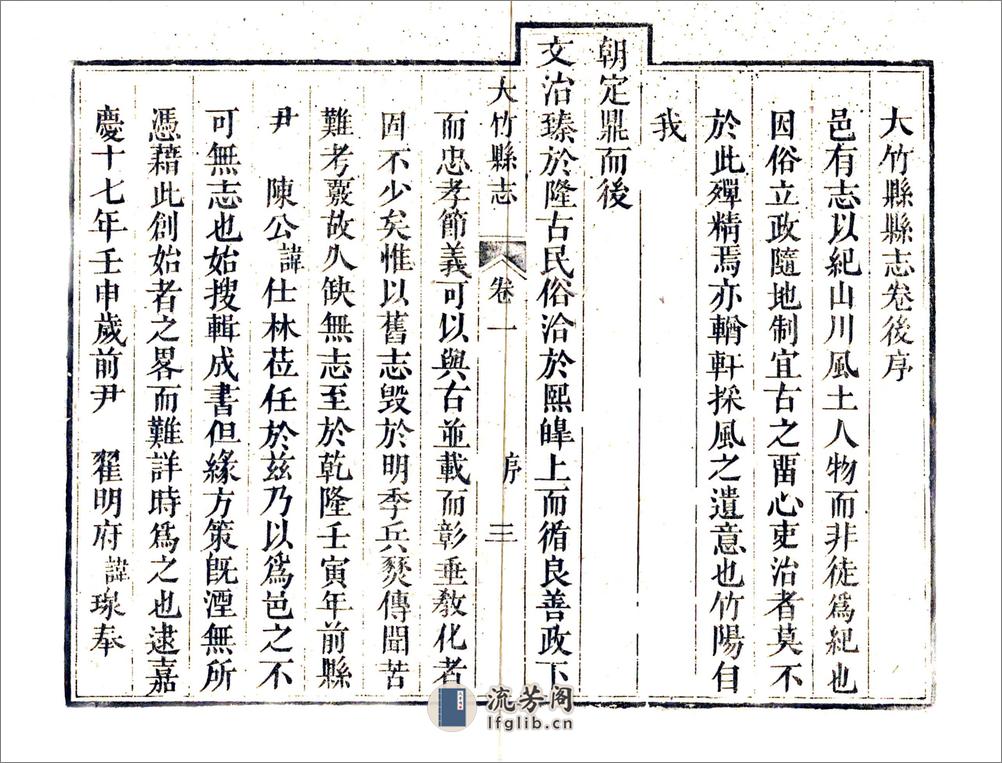 大竹縣縣志卷後序
邑有志以紀山川風土人物而非徒爲紀也
因俗立政隨地制宜古之畱心吏治者莫不
於此殫精焉亦輶軒採風之遺意也竹陽自
我
朝定鼎而後
文治臻於隆古民俗洽於熙皞上而循良善政下
大竹縣志 卷一 序 三
而忠孝節義可以與古並載而彰垂教化者
固不少矣惟以舊志毀於明季兵燹傳聞苦
難考覈故久缺無志至於乾隆壬寅年前縣
尹 陳公諱仕林莅任於兹乃以爲邑之不
可無志也始搜輯成書但緣方策旣湮無所
憑藉此創始者之畧而難詳時爲之也逮嘉
慶十七年壬申歲前尹 翟明府諱琭奉
流芳阁
lfglib.cn